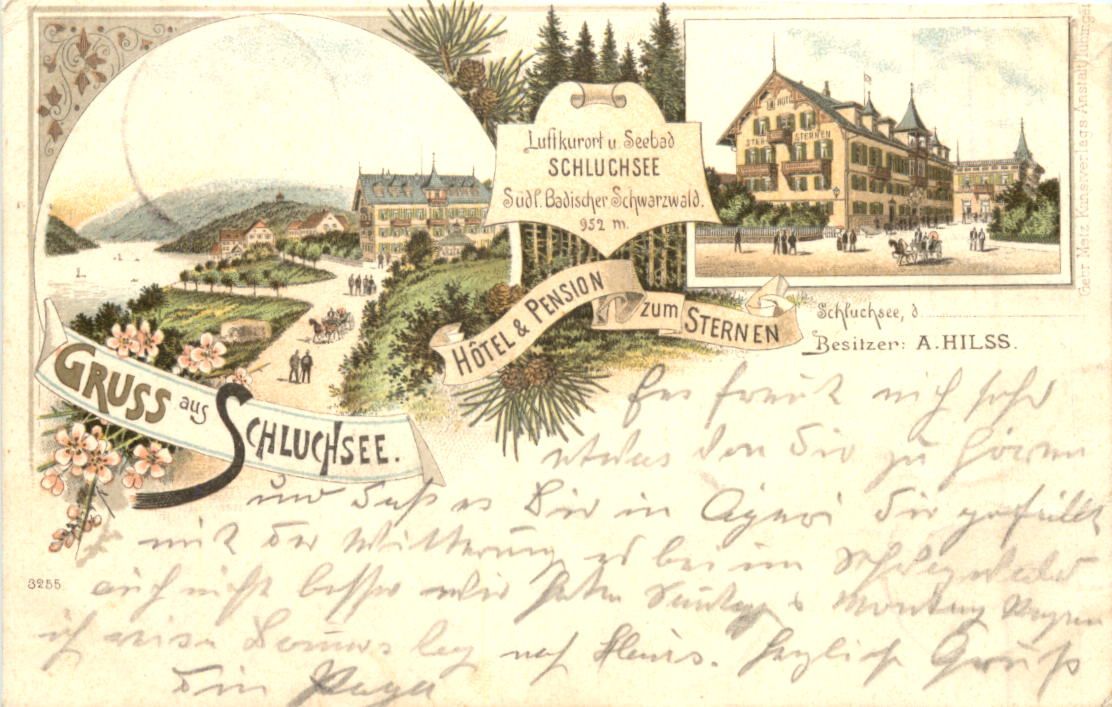 Luftkurort u. Seebad
SCHLUCHSEE
Südl. Badischer Schwarzwald.
952 m.
HOTEL
STERNEN
HÔTEL & PENSION zum STERNEN
Schluchsee, d.
Besitzer: A. HILSS.
Gebr. Metz, Kunstverlags-Anstalt, Tübingen
GRUSS aus SCHLUCHSEE.
3255
Es freut mich sehr
etwas von Dir zu hören
und daß es Dir in gefällt
mit der Witterung ist bei im
auch nicht besser wir hatten Sonntag & Montag Regen
ich reise nach Haus. Herzlich Gruß
Dein Papa